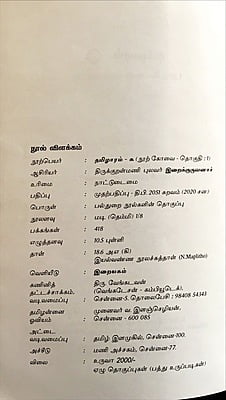 நூல் விளக்கம்
நூற்பெயர் : தமிழாரம் - க (நூற் கோவை - தொகுதி : 1)
ஆசிரியர் : திருக்குறள்மணி புலவர் இறைக்குருவனார்
உரிமை : நாட்டுடைமை
பதிப்பு : முதற்பதிப்பு - தி.பி. 2051 சுறவம் (2020 சன
பொருள் : பல்துறை நூல்களின் தொகுப்பு
நூலளவு : மடி (தெம்மி) 1/8
பக்கங்கள் : 418
எழுத்தளவு : 10.5 புள்ளி
தாள் : 18.6 அ.கி (கி)
இயல்வண்ண நூலச்சுத்தாள் (N.Maplitho)
வெளியீடு : இறைலகம்
கணினித் : திரு. வேங்கடவன்
தட்டச்சாக்கம், (வெங்கடேசன் - கம்பியூடெக்),
வடிவமைப்பு : சென்னை-5. தொலைபேசி : 98408 54343
தமிழன்னை : முனைவர் வ. இளஞ்செழியன்,
ஓவியம் : சென்னை - 600 085
அட்டை
வடிவமைப்பு : தமிழ் இளமுகில், சென்னை-100.
அச்சீடு : மணி அச்சகம், சென்னை-77.
விலை : உருவா 2000/-
ஏழு தொகுப்புகள் (பத்து உருப்படிகள்)